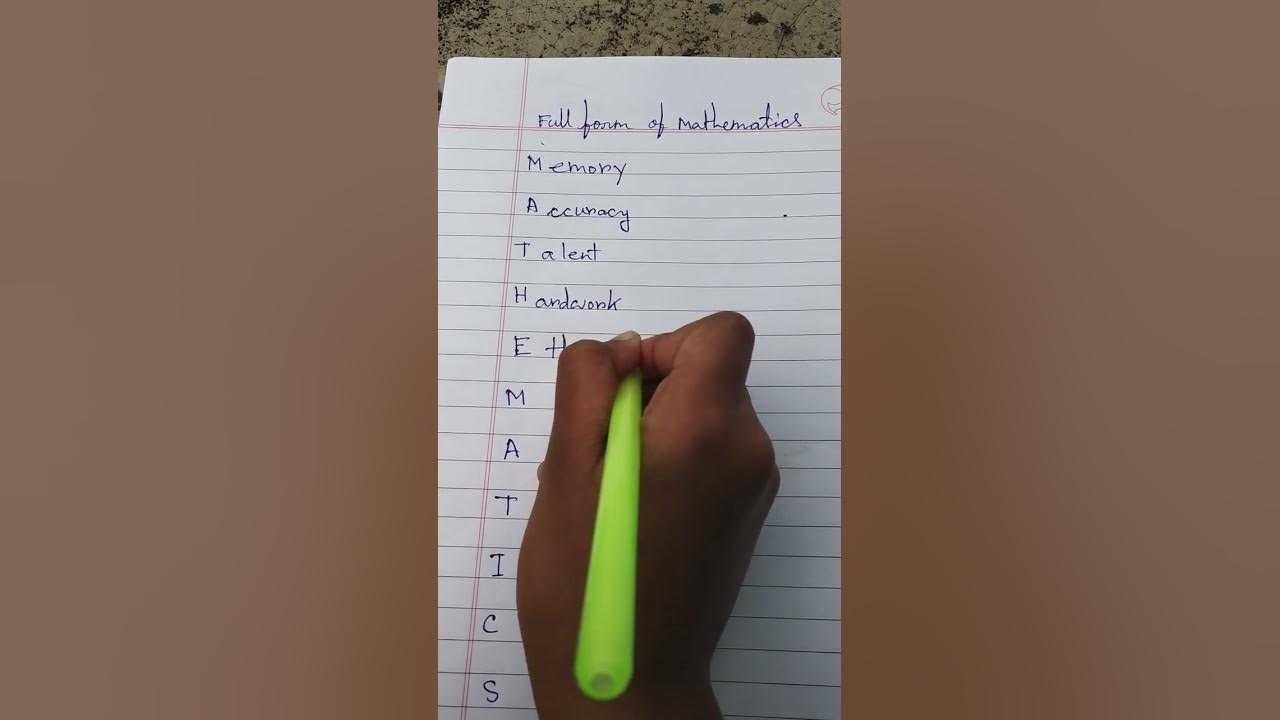 Full form of Mathematics
Memory
Accuracy
Talent
Hardwork
E
M
A
T
I
C
S